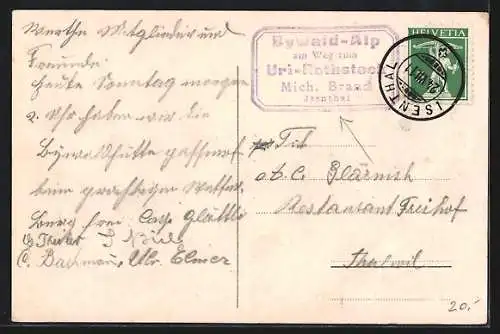 Werthe Mitglieder und
Freunde.
Heute Sonntag morgen
2 Uhr haben wir die
Bywaldhütte
beim prachtigen Wetter
Berg frei
C. Bachmann, Ulr. Elmer
Bywald-Alp
am Weg zum
Uri-Rothstock
Mich. Brand
Isenthal
HELVETIA
ISENTHAL
Tit
o.b.C. Glärnish
Restaurant Freihof
Thalwil
20.-